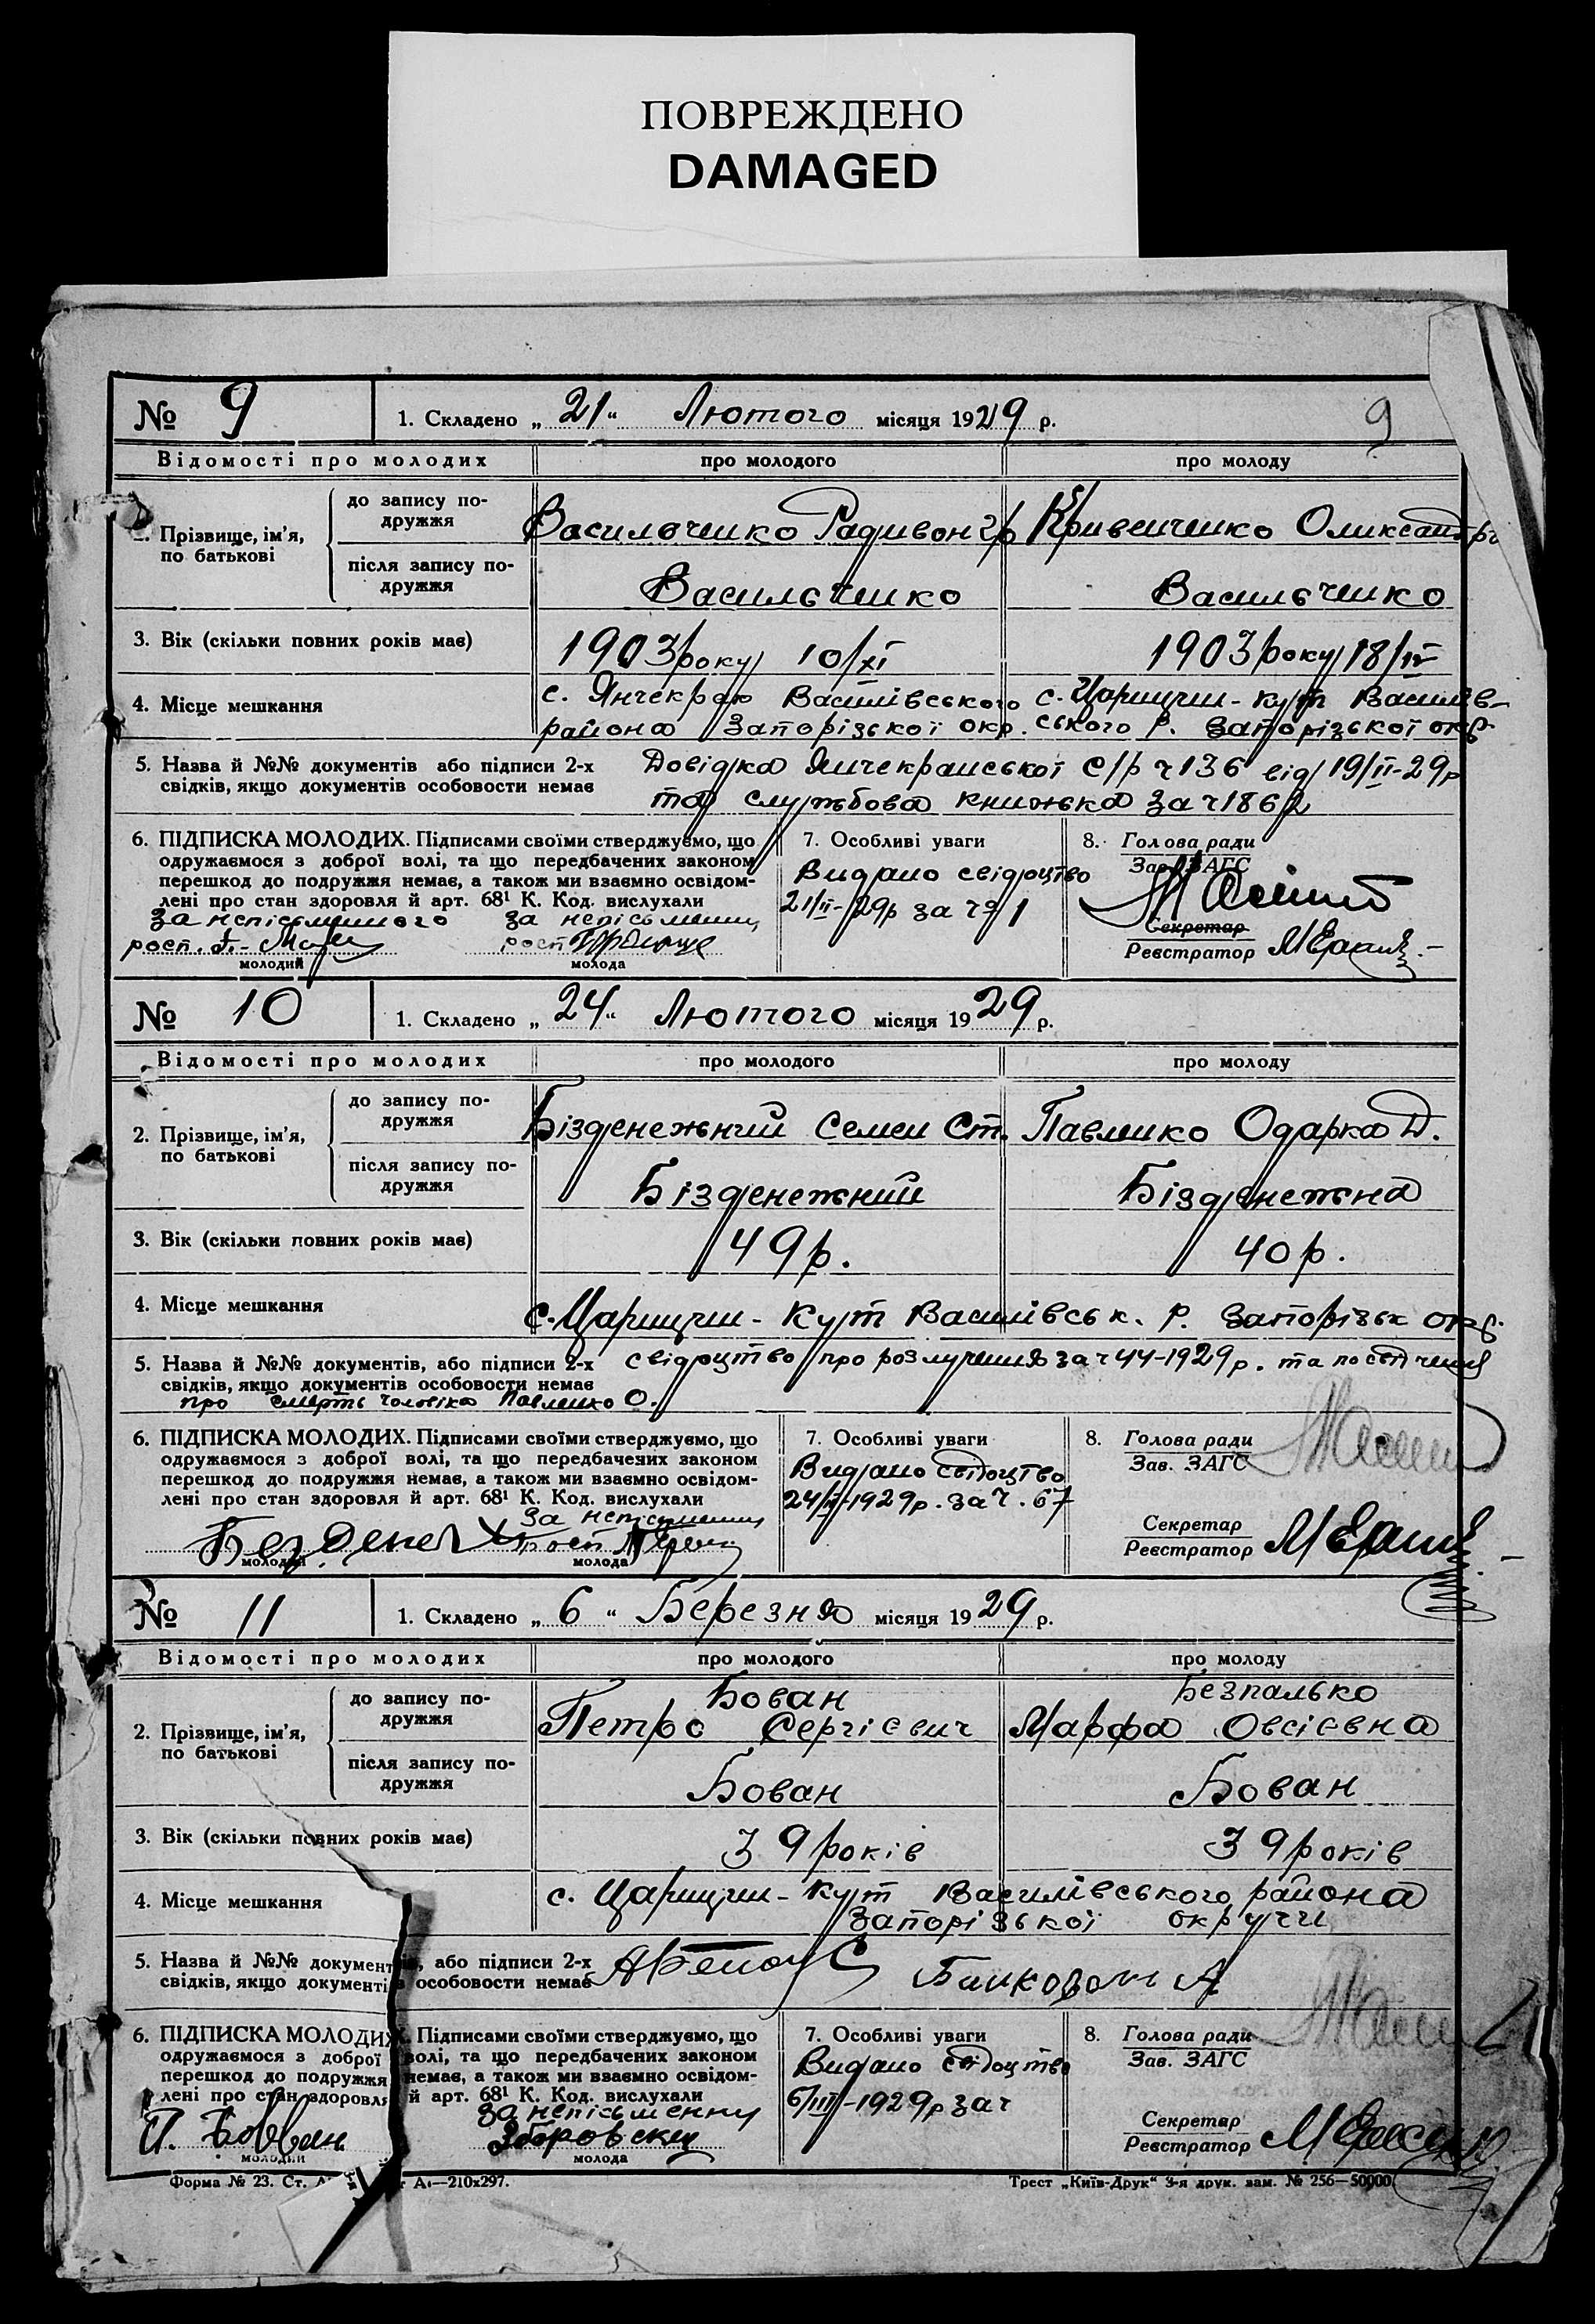 ПОВРЕЖДЕНО
DAMAGED
№ 9 1. Складено „ 21 “ Лютого місяця 1929 р. 9
Відомості про молодих про молодого про молоду
2. Прізвище, ім’я, по батькові
до запису подружжя Васильченко Радивон Гр Кривенченко Оликсандра
після запису подружжя Васильченко Васильченко
3. Вік (скільки повних років має) 1903 року 10/XI 1903 року 18/IV
4. Місце мешкання с. Янчекрак Василівського с. Царицин-Кут Василів-
района Запорізької окр. ського Р. Запорізької окр.
5. Назва й №№ документів або підписи 2-х Довідка Янчекракської с/р ч 136 від 19/II-29р
свідків, якщо документів особовости немає та службова книжка за ч 1862
6. ПІДПИСКА МОЛОДИХ. Підписами своїми стверджуємо, що
одружаємося з доброї волі, та що передбачених законом
перешкод до подружжя немає, а також ми взаємно освідом-
лені про стан здоровля й арт. 68¹ К. Код. вислухали
за неписьменного за неписьменну
рост. рост
молодий молода
7. Особливі уваги
Видано свідоцтво
21/II-29р за ч 91
8. Голова ради
Зав. ЗАГС
Секретар
Реєстратор
№ 10 1. Складено „ 24 “ Лютого місяця 1929 р.
Відомості про молодих про молодого про молоду
2. Прізвище, ім’я, по батькові
до запису подружжя Бізденежний Семен Ст. Павленко Одарка Д.
після запису подружжя Бізденежний Бізденежна
3. Вік (скільки повних років має) 49р. 40р.
4. Місце мешкання с. Царицин-Кут Василівськ. Р. Запорізьк окр.
5. Назва й №№ документів, або підписи 2-х свідоцтво про розлучення за ч 44-1929р. та посвідчення
свідків, якщо документів особовости немає
про смерть чоловіка Павленко О.
6. ПІДПИСКА МОЛОДИХ. Підписами своїми стверджуємо, що
одружаємося з доброї волі, та що передбачених законом
перешкод до подружжя немає, а також ми взаємно освідом-
лені про стан здоровля й арт. 68¹ К. Код. вислухали
за неписьменну
Безденеж рост
молодий молода
7. Особливі уваги
Видано свідоцтво
24/II-1929р. за ч. 67
8. Голова ради
Зав. ЗАГС
Секретар
Реєстратор
№ 11 1. Складено „ 6 “ Березня місяця 1929 р.
Відомості про молодих про молодого про молоду
2. Прізвище, ім’я, по батькові
до запису подружжя Бован Петро Сергієвич Безпалько Марфа Овсієвна
після запису подружжя Бован Бован
3. Вік (скільки повних років має) 39 років 39 років
4. Місце мешкання с. Царицин-Кут Василівського района
Запорізької округи
5. Назва й №№ документів, або підписи 2-х
свідків, якщо документів особовости немає
6. ПІДПИСКА МОЛОДИХ. Підписами своїми стверджуємо, що
одружаємося з доброї волі, та що передбачених законом
перешкод до подружжя немає, а також ми взаємно освідом-
лені про стан здоровля й арт. 68¹ К. Код. вислухали
за неписьменну
П. Бовван
молодий молода
7. Особливі уваги
Видано свідоцтво
6/III-1929р за ч
8. Голова ради
Зав. ЗАГС
Секретар
Реєстратор
Форма № 23. Ст. А₄—210x297. Трест „Київ-Друк“ 3-я друк. зам. № 256—50000